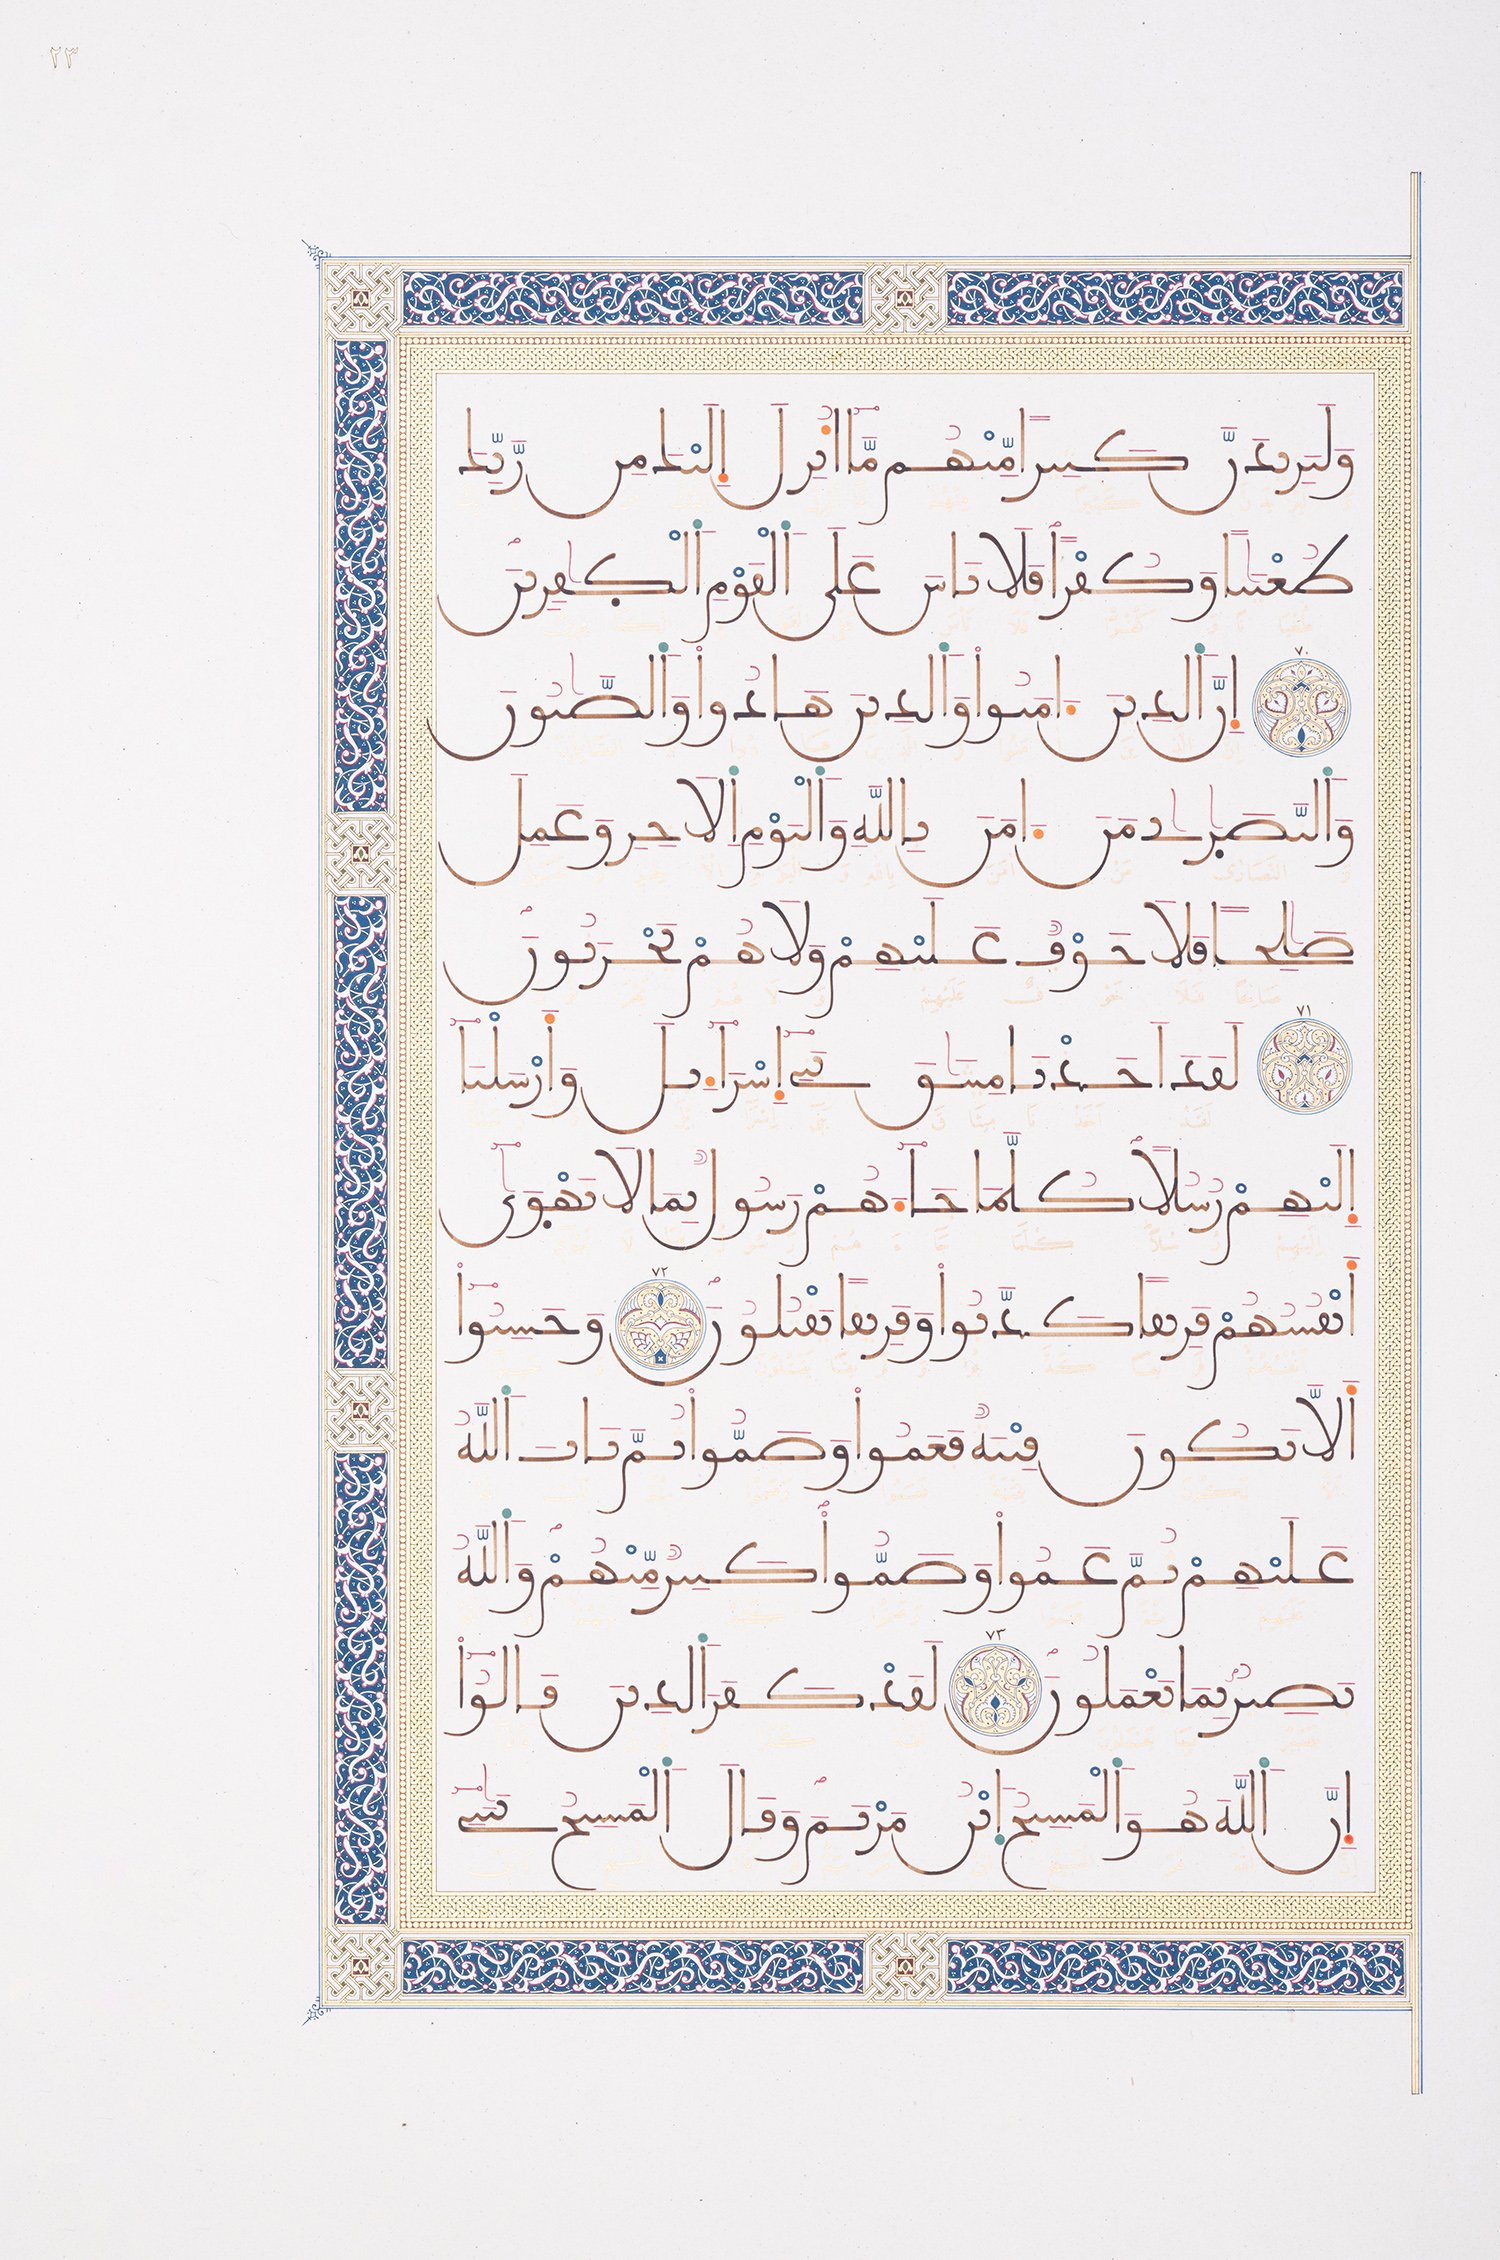 ٢٣
وَلَيَزِيدَنَّ كَثِيرًا مِّنْهُم مَّآ أُنزِلَ إِلَيْكَ مِن رَّبِّكَ
طُغْيَٰنًا وَكُفْرًا فَلَا تَاسَ عَلَى اَ۬لْقَوْمِ اِ۬لْكَٰفِرِينَۖ
٧٠ إِنَّ اَ۬لذِينَ ءَامَنُواْ وَالذِينَ هَادُواْ وَالصَّٰبُونَ
وَالنَّصَٰر۪يٰ مَنَ اٰمَنَ بِاللَّهِ وَالْيَوْمِ اِ۬لَاخِرِ وَعَمِلَ
صَٰلِحًا فَلَا خَوْفٌ عَلَيْهِمْ وَلَا هُمْ يَحْزَنُونَۖ
٧١ لَقَدَ اَخَذْنَا مِيثَٰقَ بَنِےٓ إِسْرَآءِيلَ وَأَرْسَلْنَآ
إِلَيْهِمْ رُسُلًاۖ كُلَّمَا جَآءَهُمْ رَسُولٌۢ بِمَا لَا تَهْو۪يٰٓ
أَنفُسُهُمْ فَرِيقًا كَذَّبُواْ وَفَرِيقًا يَقْتُلُونَۖ ٧٢ وَحَسِبُوٓاْ
أَلَّا تَكُونَ فِتْنَةٌ فَعَمُواْ وَصَمُّواْ ثُمَّ تَابَ اَ۬للَّهُ
عَلَيْهِمْ ثُمَّ عَمُواْ وَصَمُّواْۖ كَثِيرٌ مِّنْهُمْۖ وَاللَّهُ
بَصِيرٌۢ بِمَا يَعْمَلُونَۖ ٧٣ لَقَدْ كَفَرَ اَ۬لذِينَ قَالُوٓاْ
إِنَّ اَ۬للَّهَ هُوَ اَ۬لْمَسِيحُ اُ۪بْنُ مَرْيَمَۖ وَقَالَ اَ۬لْمَسِيحُ يَٰبَنِےٓ